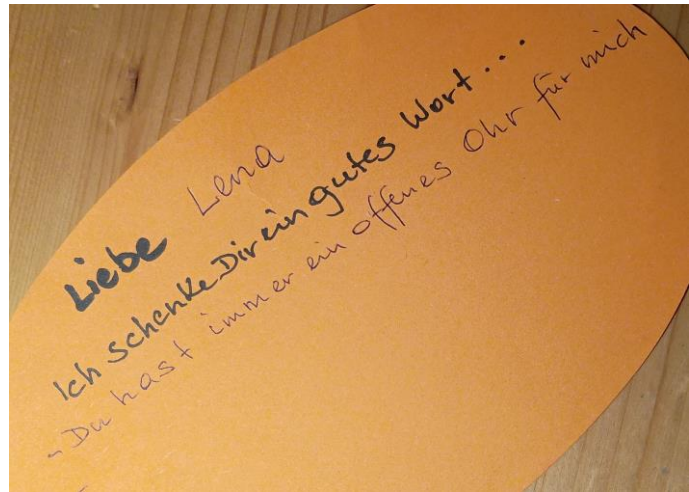 Liebe Lena
Ich schenke Dir ein gutes Wort...
- Du hast immer ein offenes Ohr für mich
-